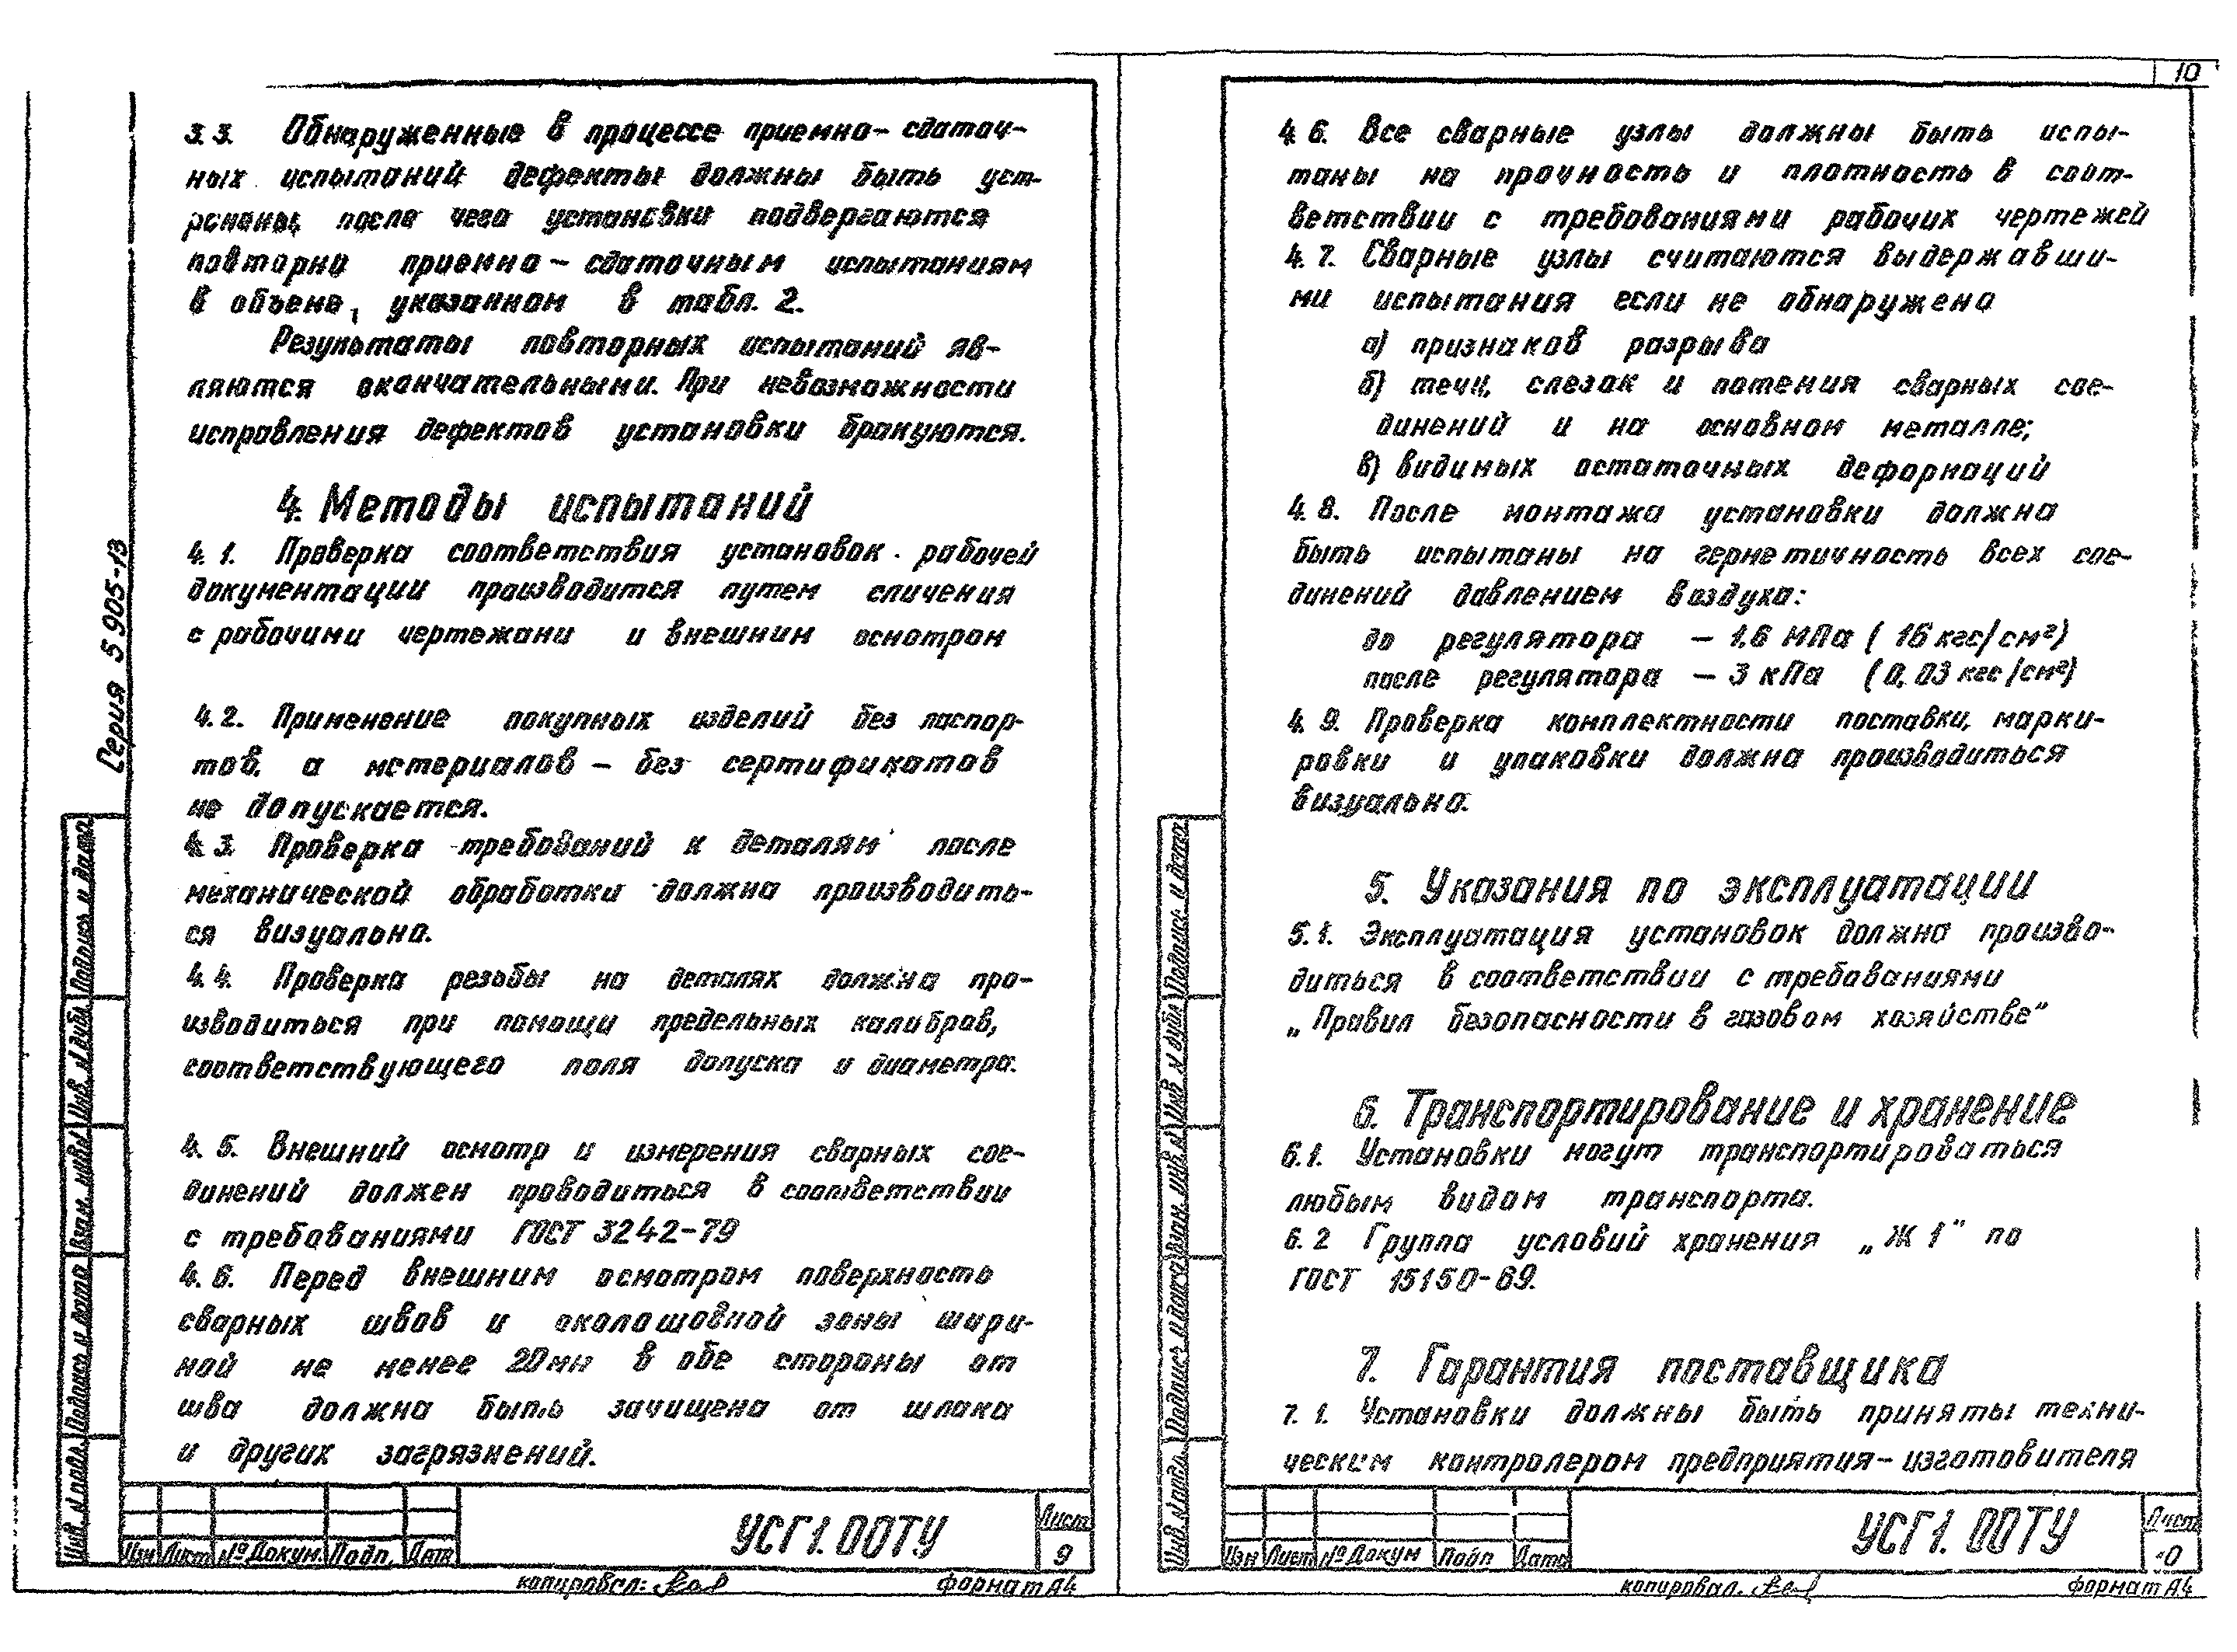 3.3. Обнаруженные в процессе приемно-сдаточ-
ных испытаний дефекты должны быть уст-
ранены, после чего установки подвергаются
повторно приемно-сдаточным испытаниям
в объеме, указанном в табл. 2.
Результаты повторных испытаний яв-
ляются окончательными. При невозможности
исправления дефектов установки бракуются.
4. Методы испытаний
4.1. Проверка соответствия установок рабочей
документации производится путем сличения
с рабочими чертежами и внешним осмотром
4.2. Применение покупных изделий без паспор-
тов, а материалов - без сертификатов
не допускается.
4.3. Проверка требований к деталям после
механической обработки должна производить-
ся визуально.
4.4. Проверка резьбы на деталях должна про-
изводиться при помощи предельных калибров,
соответствующего поля допуска и диаметра.
4.5. Внешний осмотр и измерения сварных сое-
динений должен проводиться в соответствии
с требованиями ГОСТ 3242-79
4.6. Перед внешним осмотром поверхность
сварных швов и околошовной зоны шири-
ной не менее 20мм в обе стороны от
шва должна быть зачищена от шлака
и других загрязнений.
Серия 5 905-13
Подпись и дата
Инв. № дубл
Взам. инв. №
Подпись и дата
Инв. № подл.
Изм Лист № Докум. Подп. Дата
УСГ1. 00ТУ
Лист
9
копировал:
формат А4
10
4.6. Все сварные узлы должны быть испы-
таны на прочность и плотность в соот-
ветствии с требованиями рабочих чертежей
4.7. Сварные узлы считаются выдержавши-
ми испытания если не обнаружено
а) признаков разрыва
б) течи, слезок и потения сварных сое-
динений и на основном металле;
в) видимых остаточных деформаций
4.8. После монтажа установки должна
быть испытаны на герметичность всех сое-
динений давлением воздуха:
до регулятора - 1,6 МПа (16 кгс/см²)
после регулятора - 3 кПа (0,03 кгс/см²)
4.9. Проверка комплектности поставки, марки-
ровки и упаковки должна производиться
визуально.
5. Указания по эксплуатации
5.1. Эксплуатация установок должна произво-
диться в соответствии с требованиями
„Правил безопасности в газовом хозяйстве"
6. Транспортирование и хранение
6.1. Установки могут транспортироваться
любым видом транспорта.
6.2 Группа условий хранения „Ж 1" по
ГОСТ 15150-69.
7. Гарантия поставщика
7.1. Установки должны быть приняты техни-
ческим контролером предприятия-изготовителя
Подпись и дата
Инв. № дубл
Взам. инв. №
Подпись и дата
Инв. № подл.
Изм Лист № Докум Подп Дата
УСГ1. 00ТУ
Лист
копировал.
формат А4